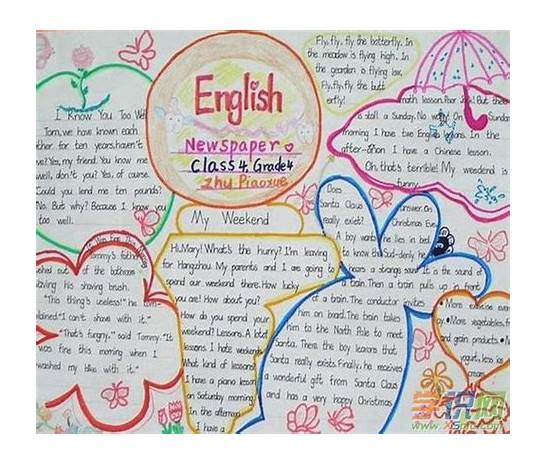 English
Newspaper
Class 4, Grade 4
Zhu Piaoxue
Fly, fly, fly the butterfly. In
the meadow is flying high. In
the gearden is flying low,
Fly, fly, fly the butt
erfly!
I Know You Too Well
Tom, we have known each
other for ten years, haven't
we? Yes, my friend. You know me
well, don't you? Yes, of course.
Could you lend me ten pounds?
No. But why? Because I know you
too well.
math lesson. Poor But there
is stall a Sunday. No On Sunday
morning I have two English lessons. In the
after-shon I have a Chinese lesson.
Oh, that's terrible! My weedend is
funny
My Weekend
Hi, Mary! What's the hurry? I'm leaving
for Hangzhou. My parents and I am going to
spend our weekend there. How lucky
you are! How about you?
How do you spend your
weekend? Lessons. A lot of
lessons. I hate weekends
What kind of lessons
I have a piano lesson
on Saturday morning.
In the afternoon
I have a
Does
Santa Claus
really exist?
A boy wants
to know the
answer. On
Christmas Eve
he lies in bed.
Sud-denly, he
hears a strange sound. It is the sound of
a train. Then a train pulls up in front
of a train. The conductor invites
him on board. The train takes
him to the North Pole to meet
Santa. There the boy learns that
Santa really exists. Finally, he receives
a wonderful gift from Santa Claus
and has a very happy Christmas
It Was Fine This Morning
Tommy's father
rushed out of the bathroom
waving his shaving brush.
"This thing's useless!" he com-
plained. "I can't shave with it."
"That's fungny," said Tommy. "It
was fine this morning when I
washed my bike with it."
More exercise every
More vegetables, fr
and grain products
yogurt, less ice
cream
学识网
www.xs5u.com